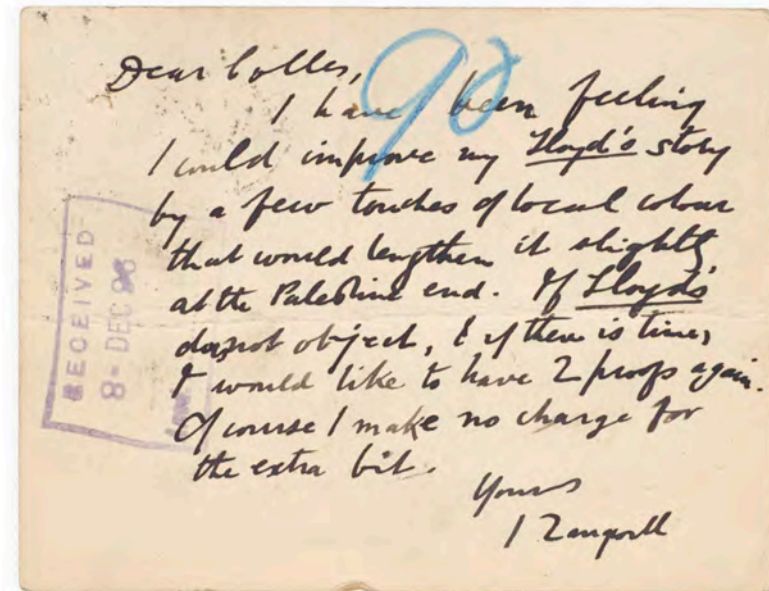 Dear Colles,
90
I have been feeling
I could improve my Lloyd's story
by a few touches of local colour
that would lengthen it slightly
at the Palestine end. If Lloyd's
does not object, & if there is time,
I would like to have 2 proofs again.
Of course I make no charge for
the extra bit.
Yours
I Zangwill
RECEIVED
8 - DEC 98